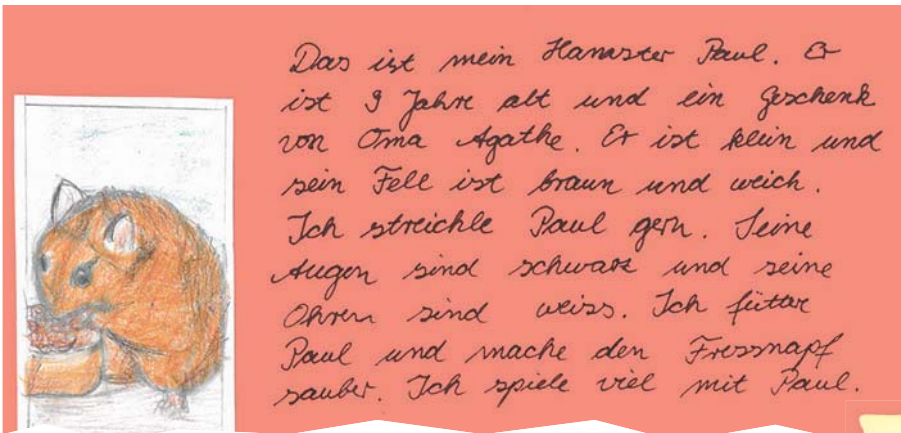 Das ist mein Hamster Paul. Er
ist 9 Jahre alt und ein Geschenk
von Oma Agathe. Er ist klein und
sein Fell ist braun und weich.
Ich streichle Paul gern. Seine
Augen sind schwarz und seine
Ohren sind weiss. Ich fütter
Paul und mache den Fressnapf
sauber. Ich spiele viel mit Paul.